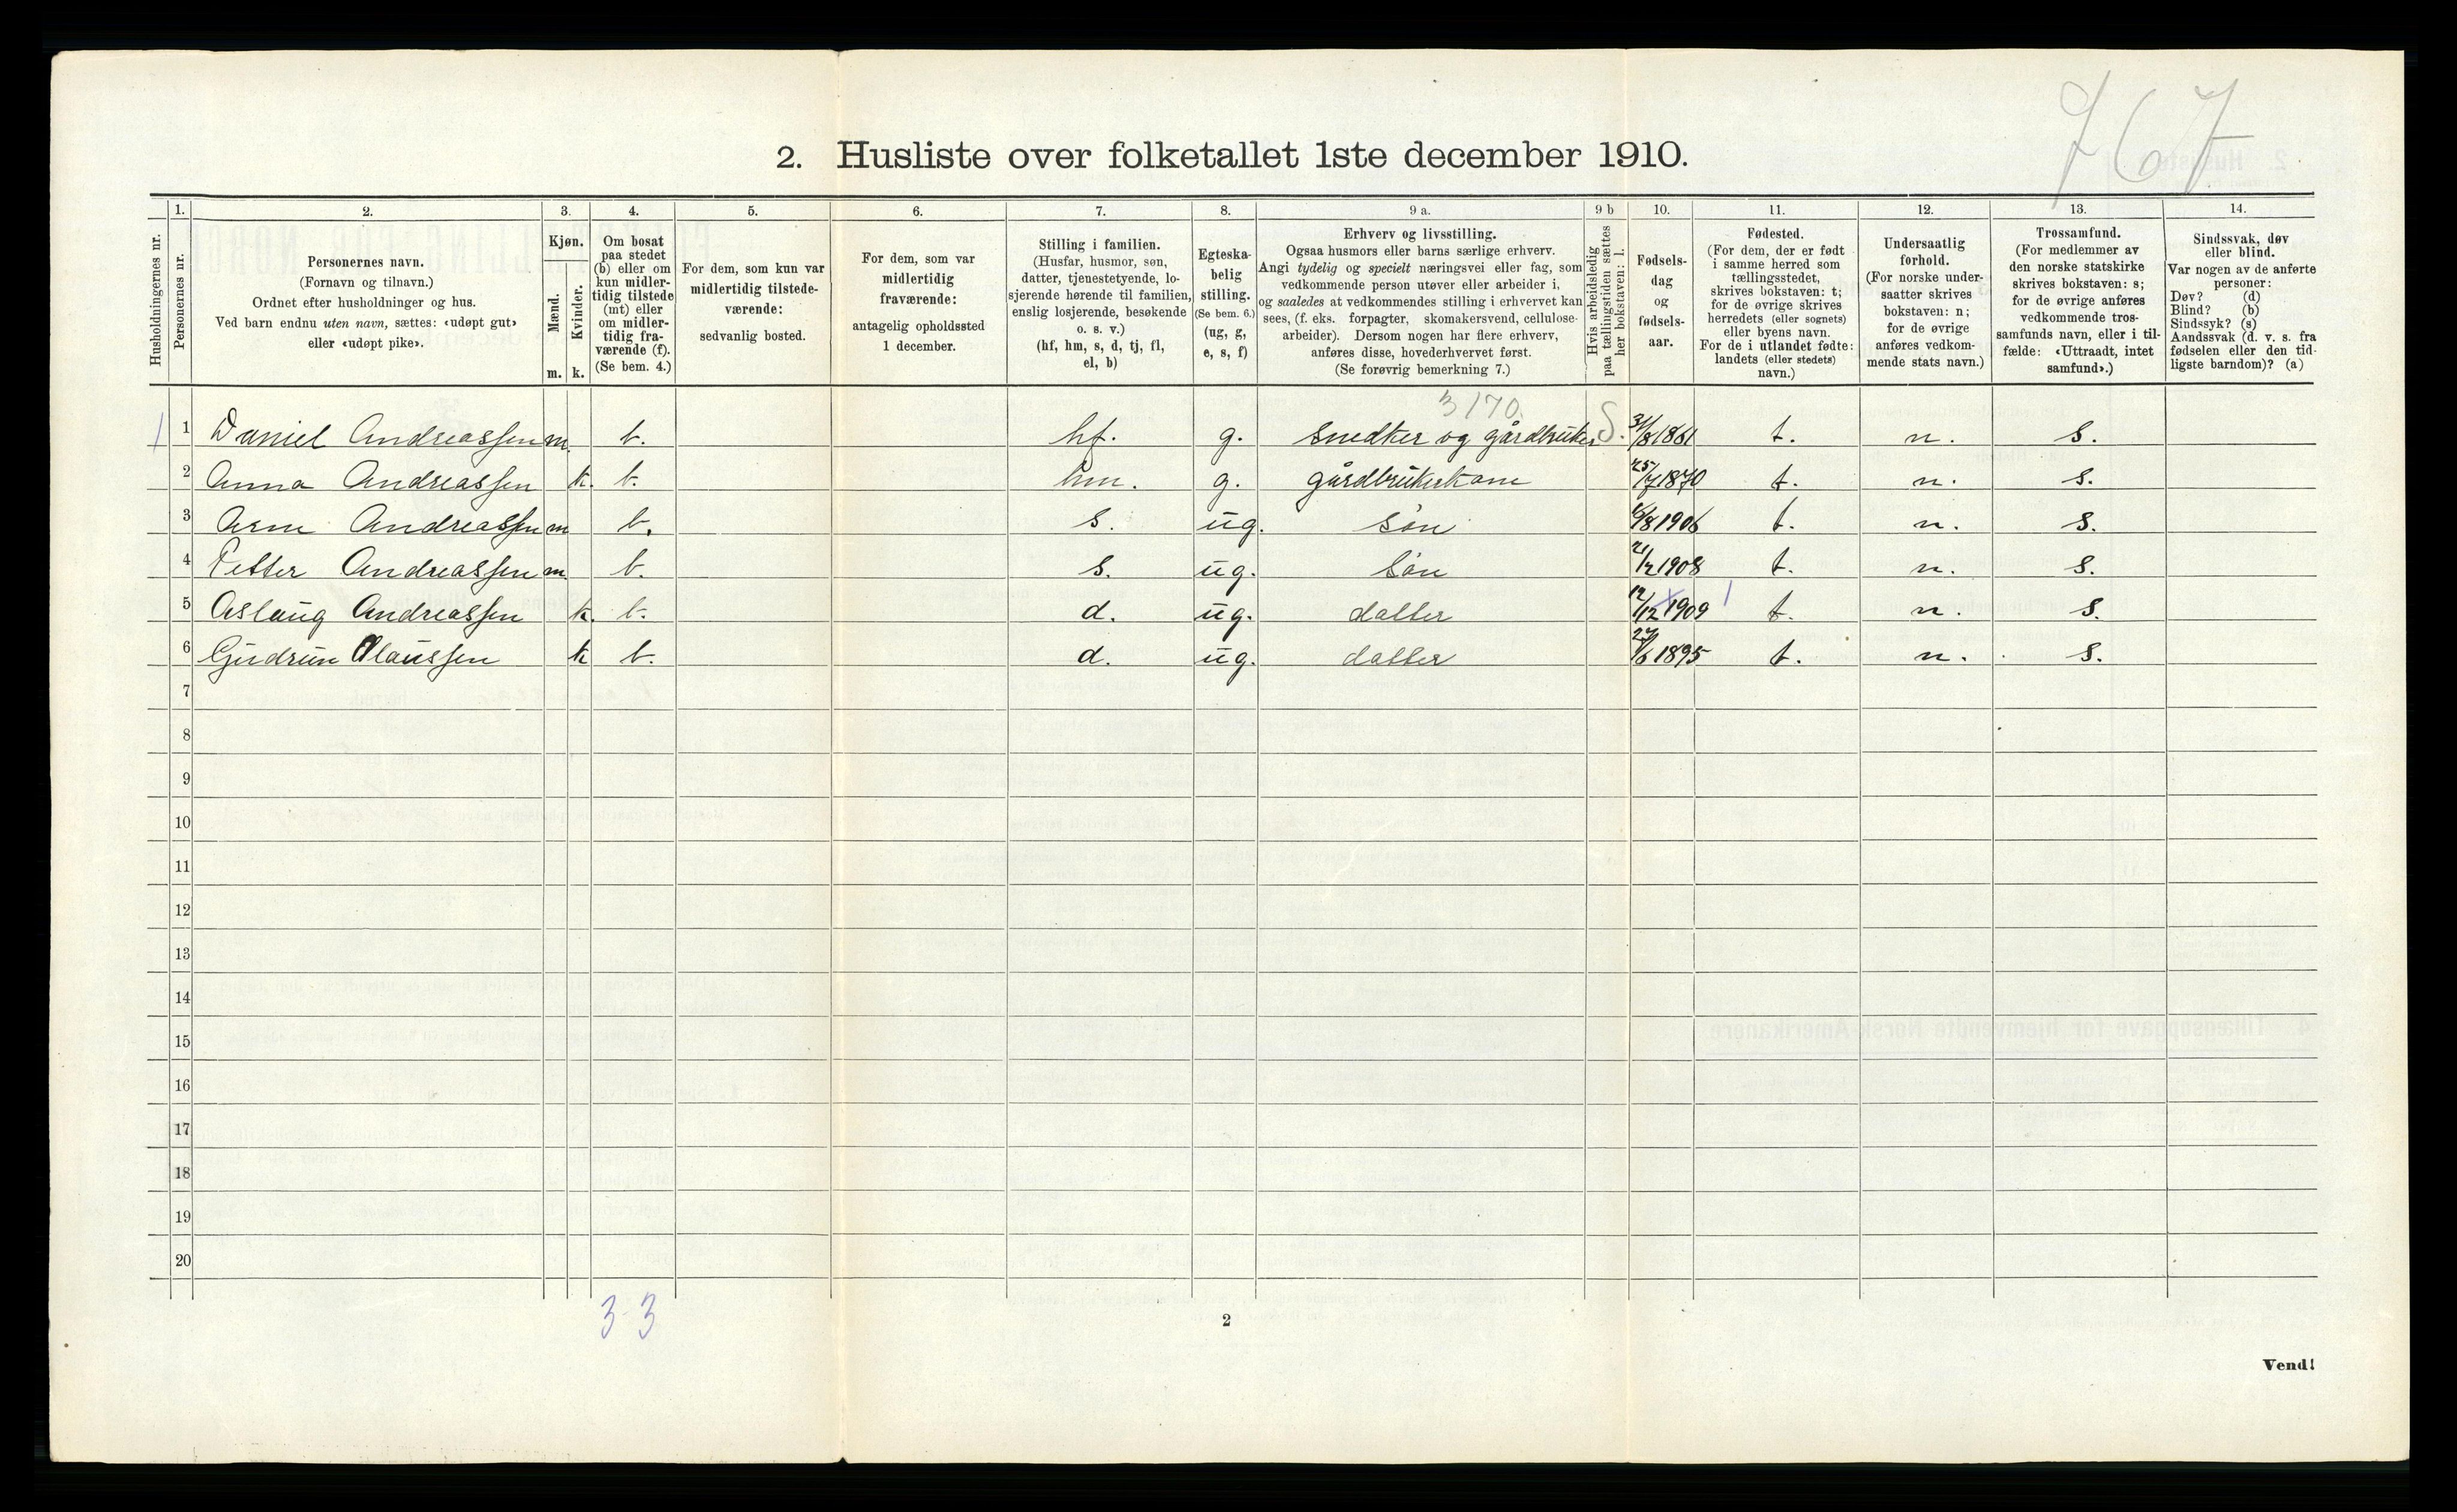 767
2. Husliste over folketallet 1ste december 1910.
Husholdningernes nr.
1. Personernes nr.
2. Personernes navn.
(Fornavn og tilnavn.)
Ordnet efter husholdninger og hus.
Ved barn endnu uten navn, sættes: «udøpt gut»
eller «udøpt pike».
3. Kjøn.
Mænd. m.
Kvinder. k.
4. Om bosat
paa stedet
(b) eller om
kun midler-
tidig tilstede
(mt) eller
om midler-
tidig fra-
værende (f).
(Se bem. 4.)
5. For dem, som kun var
midlertidig tilstede-
værende:
sedvanlig bosted.
6. For dem, som var
midlertidig
fraværende:
antagelig opholdssted
1 december.
7. Stilling i familien.
(Husfar, husmor, søn,
datter, tjenestetyende, lo-
sjerende hørende til familien,
enslig losjerende, besøkende
o. s. v.)
(hf, hm, s, d, tj, fl,
el, b)
8. Egteska-
belig
stilling.
(Se bem. 6.)
(ug, g,
e, s, f)
9 a. Erhverv og livsstilling.
Ogsaa husmors eller barns særlige erhverv.
Angi tydelig og specielt næringsvei eller fag, som
vedkommende person utøver eller arbeider i,
og saaledes at vedkommendes stilling i erhvervet kan
sees, (f. eks. forpagter, skomakersvend, cellulose-
arbeider). Dersom nogen har flere erhverv,
anføres disse, hovederhvervet først.
(Se forøvrig bemerkning 7.)
9 b Hvis arbeidsledig
paa tællingstiden sættes
her bokstaven: l.
10. Fødsels-
dag
og
fødsels-
aar.
11. Fødested.
(For dem, der er født
i samme herred som
tællingsstedet,
skrives bokstaven: t;
for de øvrige skrives
herredets (eller sognets)
eller byens navn.
For de i utlandet fødte:
landets (eller stedets)
navn.)
12. Undersaatlig
forhold.
(For norske under-
saatter skrives
bokstaven: n;
for de øvrige
anføres vedkom-
mende stats navn.)
13. Trossamfund.
(For medlemmer av
den norske statskirke
skrives bokstaven: s;
for de øvrige anføres
vedkommende tros-
samfunds navn, eller i til-
fælde: «Uttraadt, intet
samfund».)
14. Sindssvak, døv
eller blind.
Var nogen av de anførte
personer:
Døv? (d)
Blind? (b)
Sindssyk? (s)
Aandssvak (d. v. s. fra
fødselen eller den tid-
ligste barndom)? (a)
3170.
1 1 Daniel Andreassen m. b. hf. g. Snedker og gårdbruker S. 31/8 1861 t. n. s.
2 Anna Andreassen k. b. hm. g. gårdbrukerkone 25/7 1870 t. n. s.
3 Arne Andreassen m b. s. ug. søn 6/8 1906 t. n. s.
4 Petter Andreassen m. b. s. ug. søn 21/2 1908 t. n. s.
5 Aslaug Andreassen k. b. d. ug. datter 12/12 1909 t. n. s.
6 Gudrun Olaussen k b. d. ug. datter 27/6 1895 t. n. s.
7
8
9
10
11
12
13
14
15
16
17
18
19
20
3-3
2
Vend!